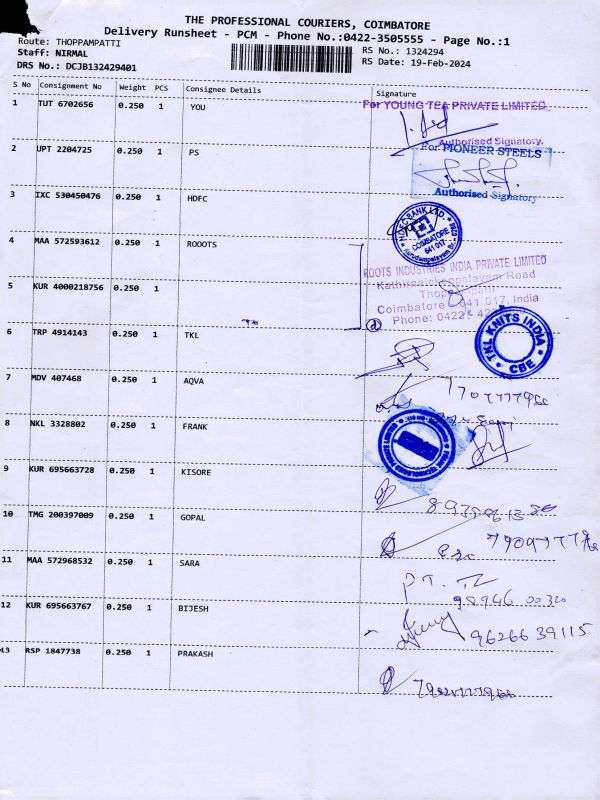 THE PROFESSIONAL COURIERS, COIMBATORE
Delivery Runsheet - PCM - Phone No.:0422-3505555 - Page No.:1
Route: THOPPAMPATTI
RS No.: 1324294
Staff: NIRMAL
RS Date: 19-Feb-2024
DRS No.: DCJB132429401
S No Consignment No Weight PCS Consignee Details Signature
1 TUT 6702656 0.250 1 YOU
For YOUNG TEA PRIVATE LIMITED
Authorised Signatory.
2 UPT 2204725 0.250 1 PS
For PIONEER STEELS
Authorised Signatory
3 IXC 530450476 0.250 1 HDFC
HDFC BANK LTD.
COIMBATORE
641 017
4 MAA 572593612 0.250 1 ROOOTS
ROOTS INDUSTRIES INDIA PRIVATE LIMITED
Road
5 KUR 4000218756 0.250 1
Coimbatore - 641 017, India
Phone: 0422
6 TRP 4914143 0.250 1 TKL
TKL KNITS INDIA
CBE
7 MDV 407468 0.250 1 AQVA
8 NKL 3328802 0.250 1 FRANK
9 KUR 695663728 0.250 1 KISORE
10 TMG 200397009 0.250 1 GOPAL
11 MAA 572968532 0.250 1 SARA
98946 00320
12 KUR 695663767 0.250 1 BIJESH
9626639115
13 RSP 1847738 0.250 1 PRAKASH